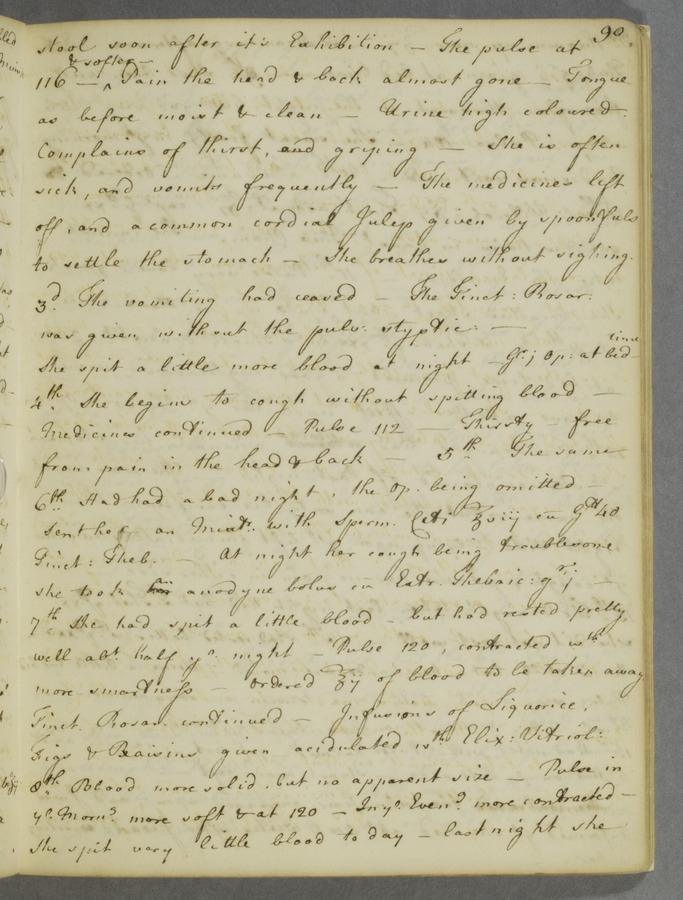 90.
stool soon after it's Exhibition — The pulse at
& softer —
116 — ^ Pain the head & back almost gone — Tongue
as before moist & clean — Urine high coloured.
Complains of thirst, and griping — She is often
sick, and vomits frequently — The medicines left
off, and a common cordial Julep given by spoonfuls
to settle the stomach — She breathes without sighing.
3d. The vomiting had ceased — The Tinct: Rosar.
was given without the pulv: styptic: —
time
She spit a little more blood at night — Gr: j Op: at bed-
4th. She begins to cough without spitting blood —
Medicines continued — Pulse 112 — Thirsty — free
from pain in the head & back — 5th. The same
6th. Had had a bad night, the Op. being omitted —
sent her an Mixtr. with Sperm. Ceti ℥viij cu gtt 40
Tinct: Theb. — At night her cough being troublesome
she took anodyne bolus cu Extr. Thebaic: gr j —
7th. She had spit a little blood — but had rested pretty
well abt. half ye. night — Pulse 120, contracted wth.
more smartness — ordered of blood to be taken away
Tinct. Rosar. continued — Infusions of Liquorice,
Figs & Raisins given acidulated wth. Elix: Vitriol:
8th. Blood more solid. but no apparent size — Pulse in
ye. Morng. more soft & at 120 — In ye. Eveng. more contracted —
She spit very little blood to day — last night she